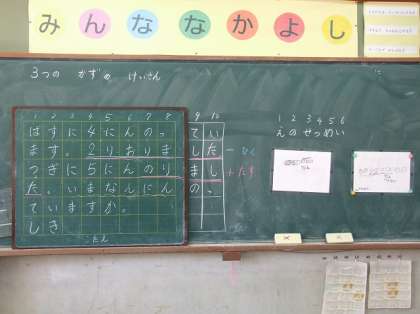 みんななかよし
3つの かずの けいさん
1 2 3 4 5 6 7 8 9 10
はすに4にんのってい
ます。2りおりました
つぎに5にんのりまし
た。いまなんにんの、
ていますか。
しき
こたえ
1 2 3 4 5 6
えのせつめい